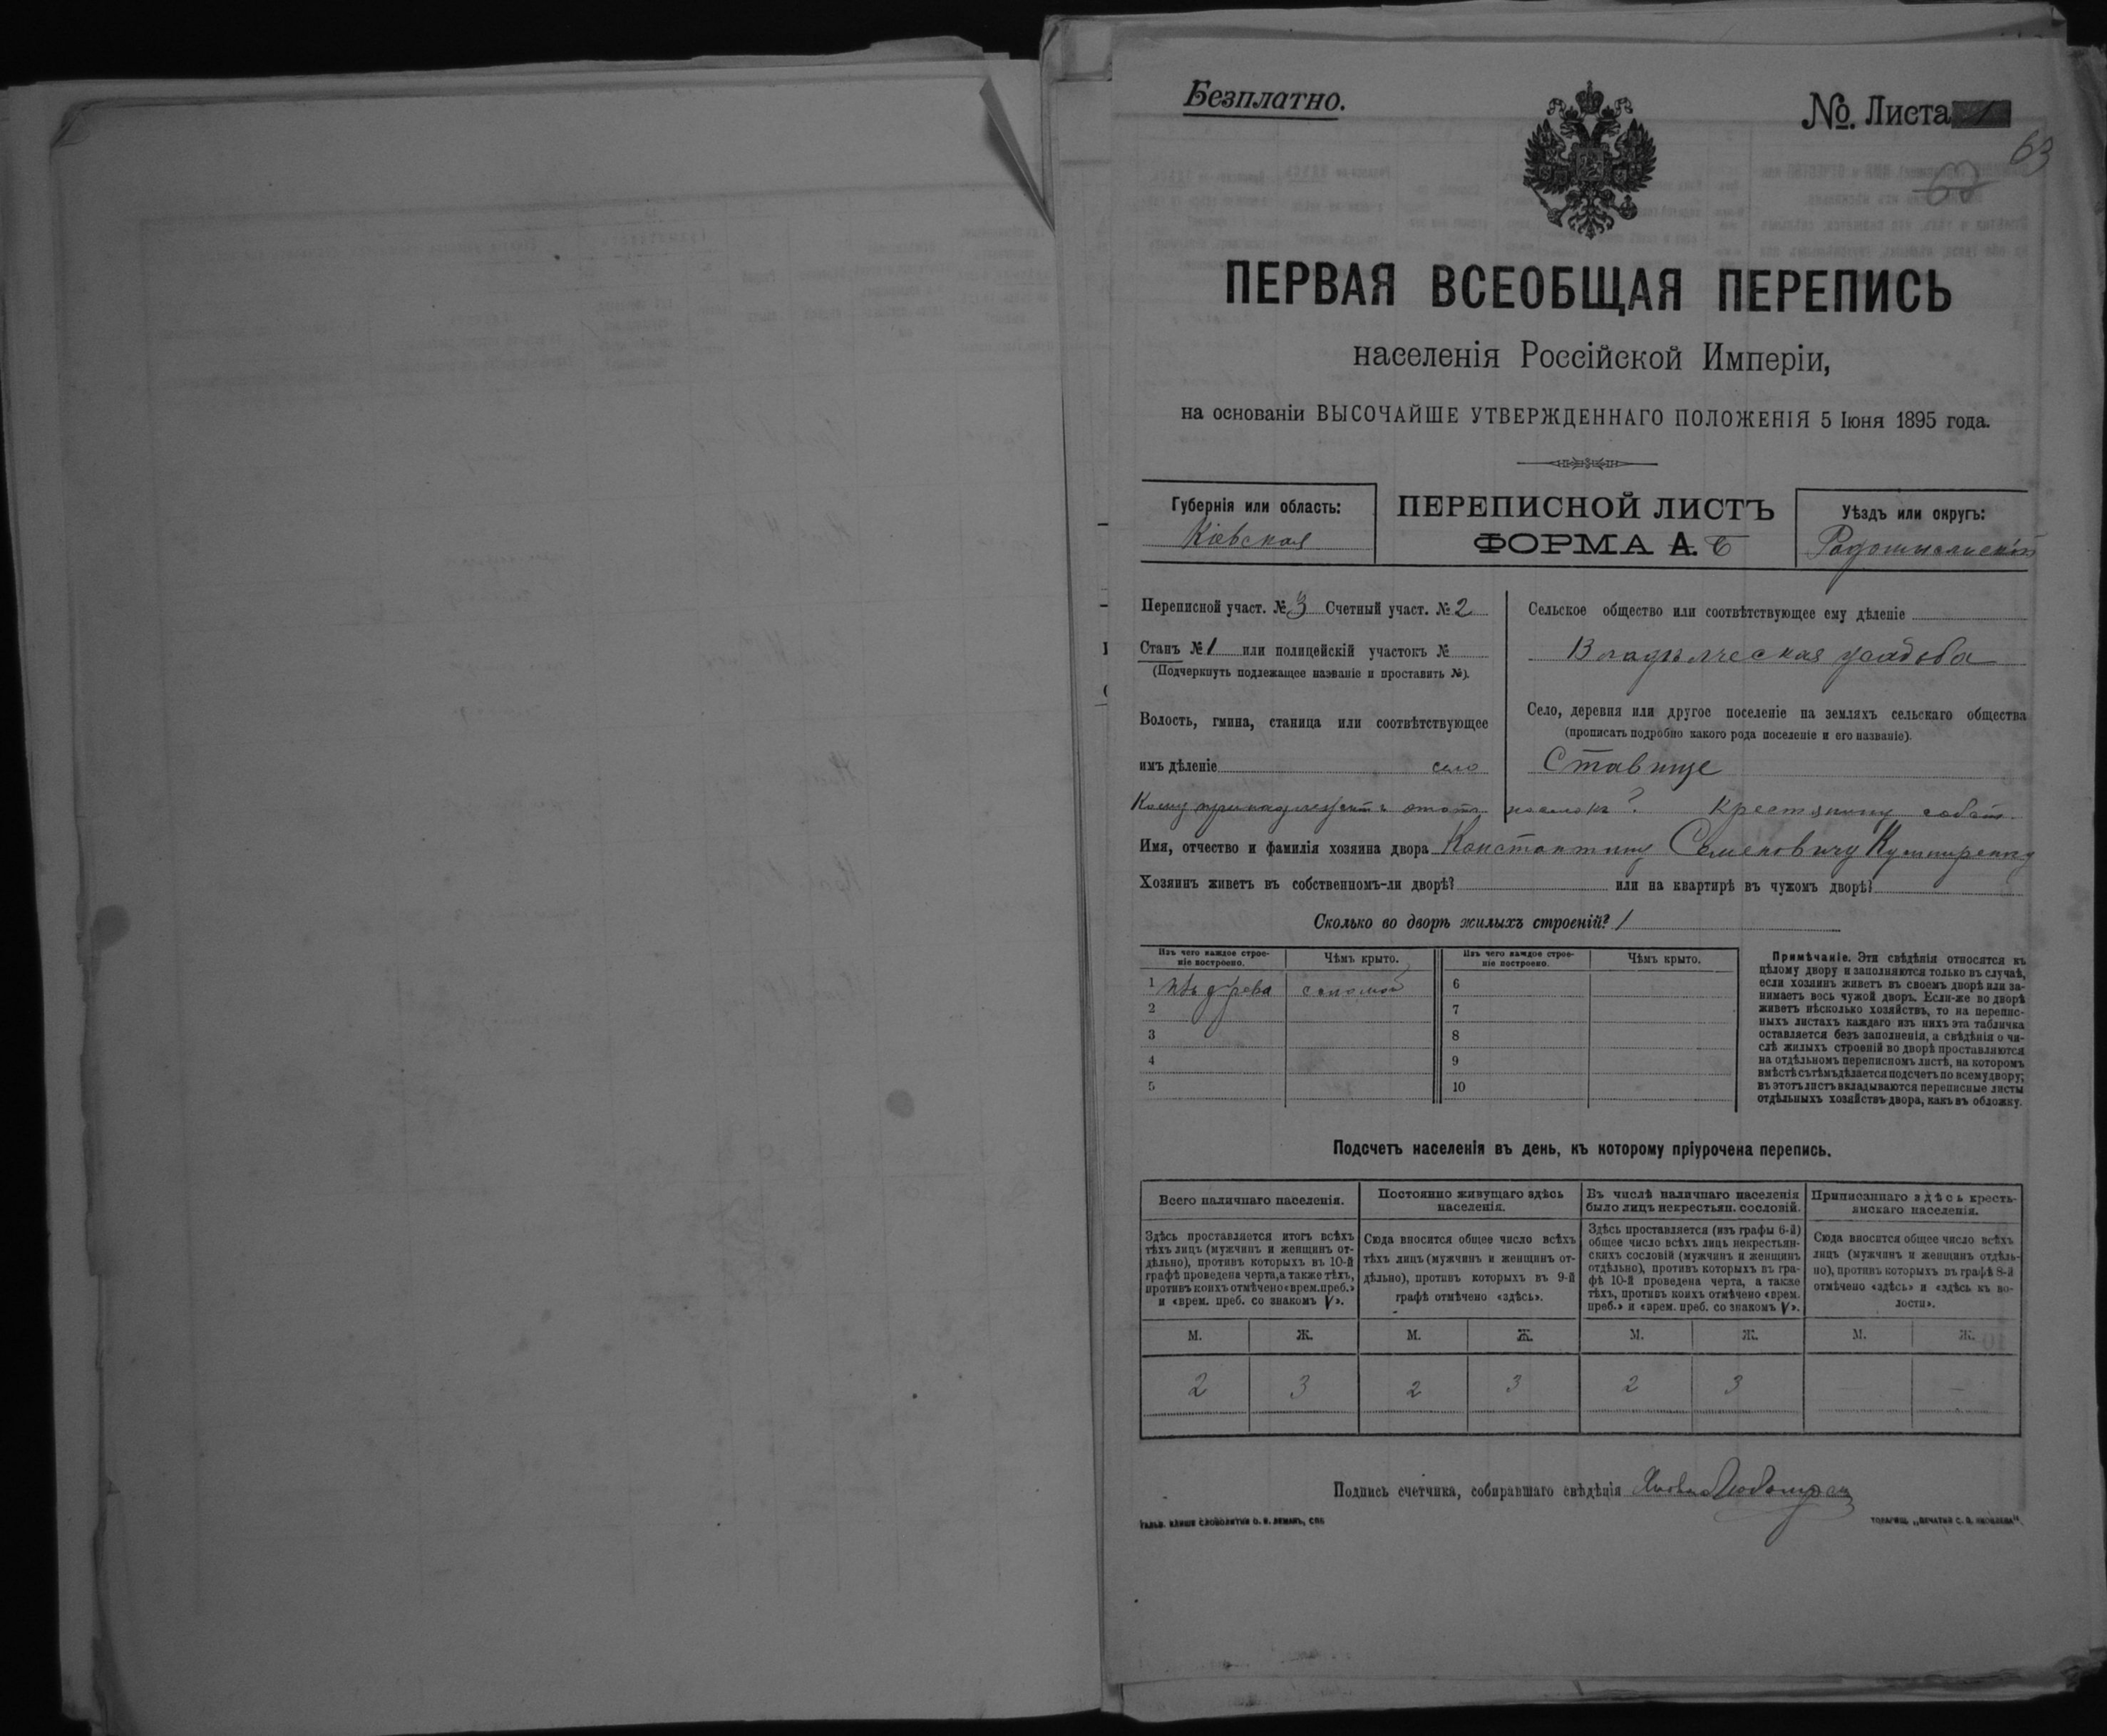 Безплатно.
№. Листа 1
63
62
ПЕРВАЯ ВСЕОБЩАЯ ПЕРЕПИСЬ
населенія Россійской Имперіи,
на основаніи ВЫСОЧАЙШЕ УТВЕРЖДЕННАГО ПОЛОЖЕНІЯ 5 Іюня 1895 года.
Губернія или область:
Кіевская
ПЕРЕПИСНОЙ ЛИСТЪ
ФОРМА А. Б
Уѣздъ или округъ:
Радомысльскій
Переписной участ. № 3 Счетный участ. № 2
Станъ № 1 или полицейскій участокъ №
(Подчеркнуть подлежащее названіе и проставить №).
Волость, гмина, станица или соотвѣтствующее
имъ дѣленіе село
Сельское общество или соотвѣтствующее ему дѣленіе
Владѣльческая усадьба
Село, деревня или другое поселеніе на земляхъ сельскаго общества
(прописать подробно какого рода поселеніе и его названіе).
Ставище
Кому принадлежитъ этотъ поселокъ? Крестянину собств.
Имя, отчество и фамилія хозяина двора Константину Семеновичу Кушниренку
Хозяинъ живетъ въ собственномъ-ли дворѣ? или на квартирѣ въ чужомъ дворѣ?
Сколько во дворѣ жилыхъ строеній? 1
Изъ чего каждое строеніе построено. Чѣмъ крыто. Изъ чего каждое строеніе построено. Чѣмъ крыто.
1 Изъ древа соломой 6
2 7
3 8
4 9
5 10
Примѣчаніе. Эти свѣдѣнія относятся къ
цѣлому двору и заполняются только въ случаѣ,
если хозяинъ живетъ въ своемъ дворѣ или за-
нимаетъ весь чужой дворъ. Если-же во дворѣ
живетъ нѣсколько хозяйствъ, то на перепис-
ныхъ листахъ каждаго изъ нихъ эта табличка
оставляется безъ заполненія, а свѣдѣнія о чи-
слѣ жилыхъ строеній во дворѣ проставляются
на отдѣльномъ переписномъ листѣ, на которомъ
вмѣстѣ съ тѣмъ дѣлается подсчетъ по всему двору;
въ этотъ листъ вкладываются переписные листы
отдѣльныхъ хозяйствъ двора, какъ въ обложку.
Подсчетъ населенія въ день, къ которому пріурочена перепись.
Всего наличнаго населенія.
Здѣсь проставляется итогъ всѣхъ
тѣхъ лицъ (мужчинъ и женщинъ от-
дѣльно), противъ которыхъ въ 10-й
графѣ проведена черта, а также тѣхъ,
противъ коихъ отмѣчено «врем. преб.»
и «врем. преб. со знакомъ V».
Постоянно живущаго здѣсь
населенія.
Сюда вносится общее число всѣхъ
тѣхъ лицъ (мужчинъ и женщинъ от-
дѣльно), противъ которыхъ въ 9-й
графѣ отмѣчено «здѣсь».
Въ числѣ наличнаго населенія
было лицъ некрестьян. сословій.
Здѣсь проставляется (изъ графы 6-й)
общее число всѣхъ лицъ некрестьян-
скихъ сословій (мужчинъ и женщинъ
отдѣльно), противъ которыхъ въ гра-
фѣ 10-й проведена черта, а также
тѣхъ, противъ коихъ отмѣчено «врем.
преб.» и «врем. преб. со знакомъ V».
Приписаннаго здѣсь кресть-
янскаго населенія.
Сюда вносится общее число всѣхъ
лицъ (мужчинъ и женщинъ отдѣль-
но), противъ которыхъ въ графѣ 8-й
отмѣчено «здѣсь» и «здѣсь къ во-
лости».
М. Ж. М. Ж. М. Ж. М. Ж.
2 3 2 3 2 3 —
Подпись счетчика, собиравшаго свѣдѣнія
ГАЛЬВ. КЛИШЕ СЛОВОЛИТНИ О. И. ЛЕМАНЪ, СПБ
ТОВАРИЩ. „ПЕЧАТНЯ С. П. ЯКОВЛЕВА".